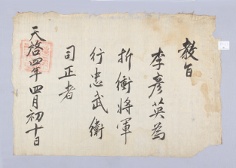 教旨
李彦英為
折衝將軍
行忠武衛
司正者
天啓四年四月初十日